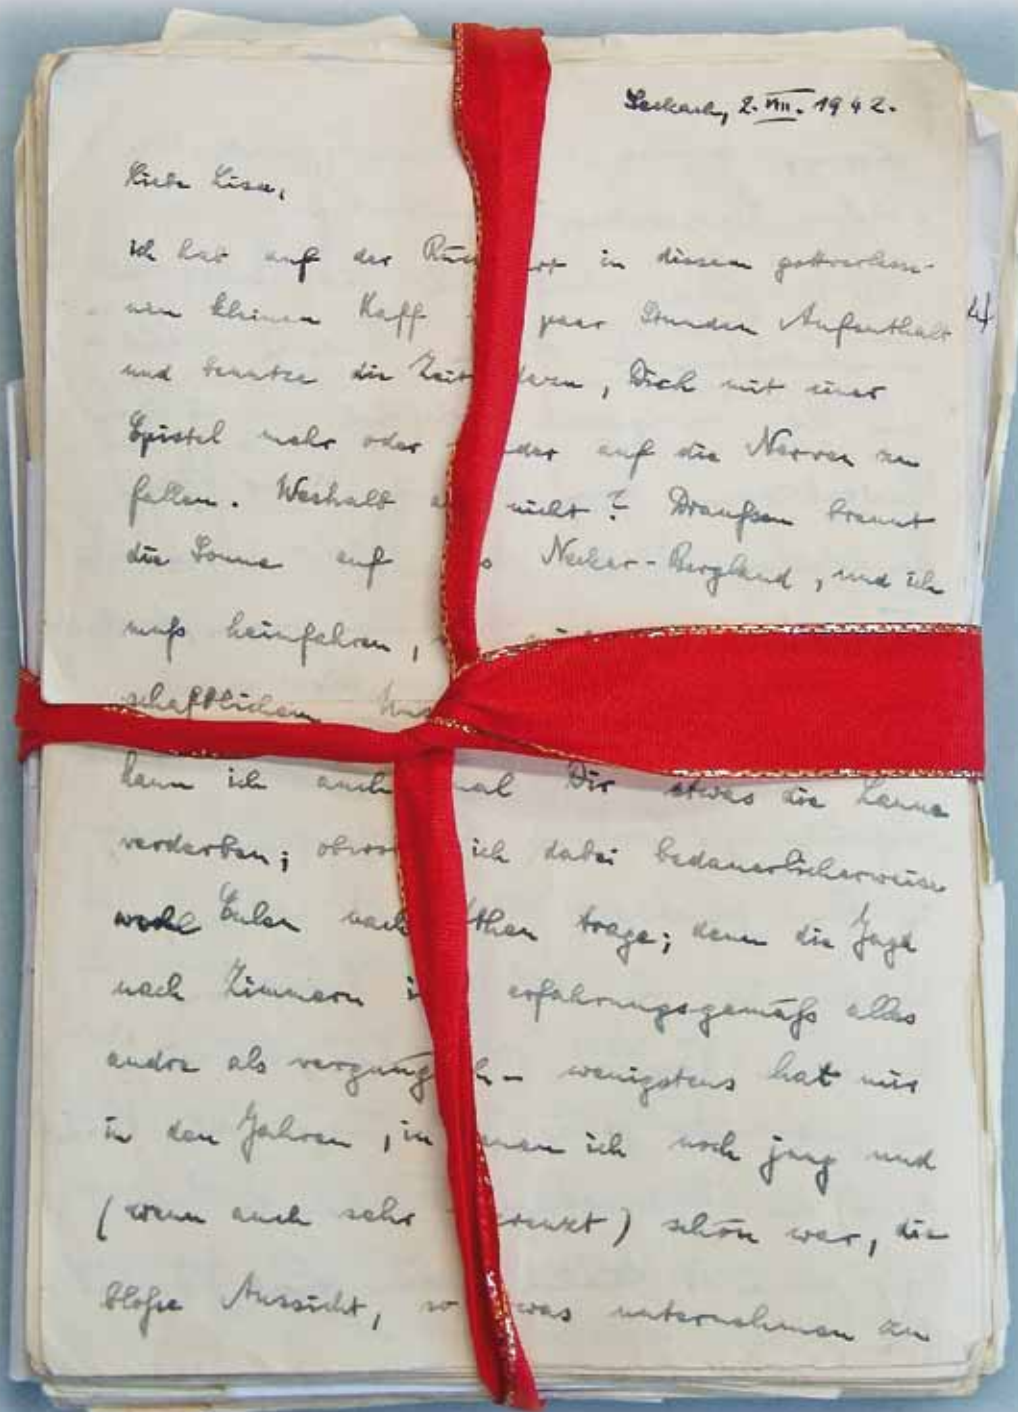 Seckach, 2. VIII. 1942.
Liebe Lisa,
ich hab auf der Rück in diesem gottverlasse-
nen kleinen Kaff paar Stunden Aufenthalt
und benutze die Zeit, Dich mit einer
Epistel mehr oder auf die Nerven zu
fallen. Weshalb nicht? Draußen brennt
die Sonne auf Neckar-Bergland, und ich
muß heimfahren,
schaftlichen
kann ich auch mal Dir etwas die Laune
verderben; ich dabei bedauerlicherweise
wohl Eulen nach then trage; denn die Jagd
nach Zimmern erfahrungsgemäß alles
andre als – wenigstens hat mir
in den Jahren, in ich noch jung und
(wenn auch sehr ) schön war, die
bloße Aussicht, so was unternehmen zu